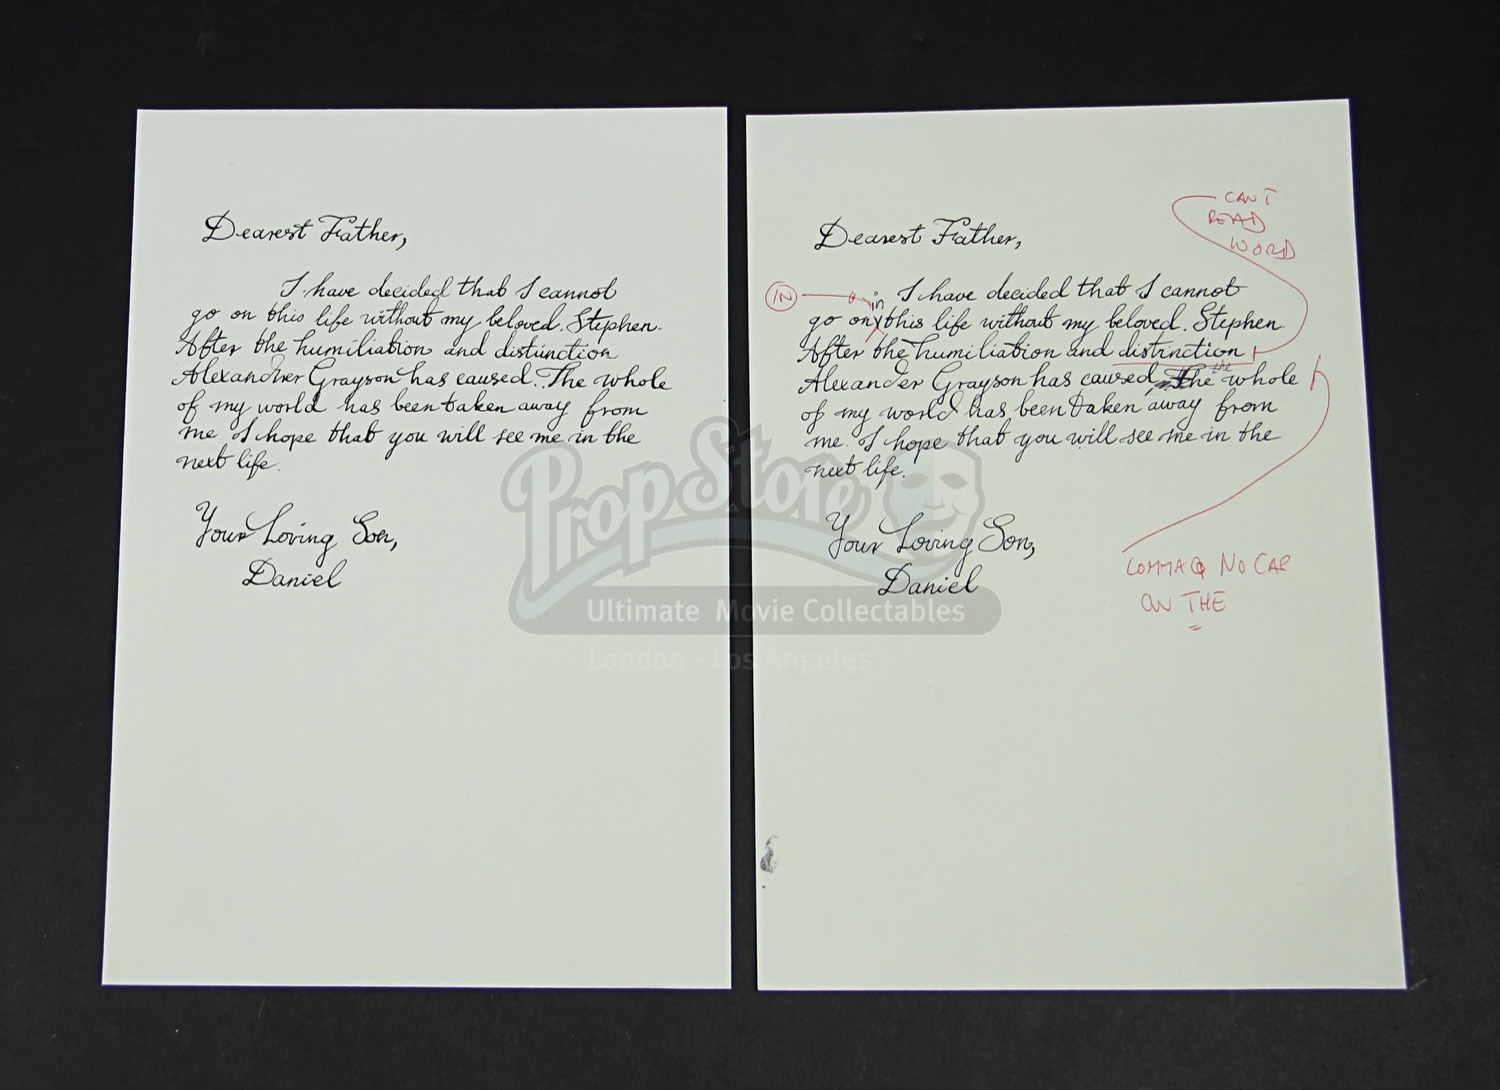 Dearest Father,
I have decided that I cannot
go on this life without my beloved. Stephen.
After the humiliation and distinction
Alexander Grayson has caused. The whole
of my world has been taken away from
me I hope that you will see me in the
next life.
Your Loving Son,
Daniel
CAN'T
READ
WORD
IN
Dearest Father,
in
I have decided that I cannot
go on this life without my beloved. Stephen.
After the humiliation and distinction
the
Alexander Grayson has caused, The whole
of my world has been taken away from
me. I hope that you will see me in the
next life.
Your Loving Son,
Daniel
COMMA NO CAP
ON THE
PropStore
Ultimate Movie Collectables
London - Los Angeles